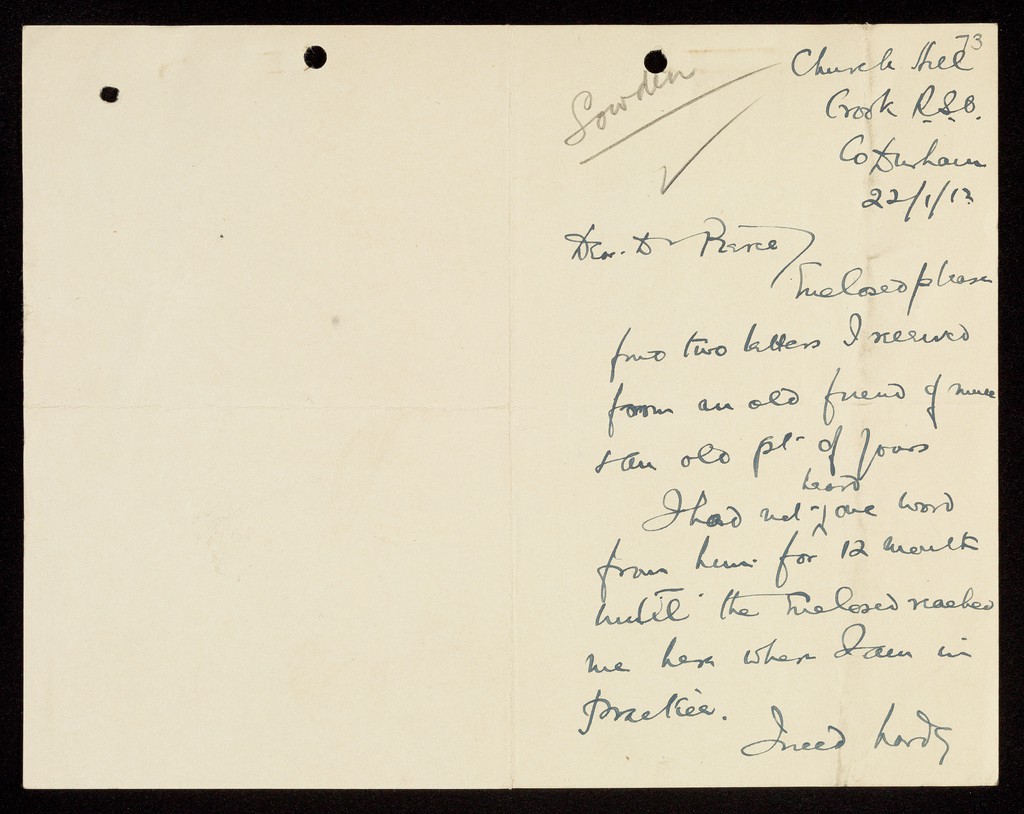 73
Sowden
Church Hill
Crook R.S.O.
Co Durham
22/1/13
Dear Dr Pierce
Enclosed please
find two letters I received
from an old friend of mine
& an old pt. of yours
I had not heard one word
from him for 12 months
until the Enclosed reached
me here where I am in
practice.
I need hardly